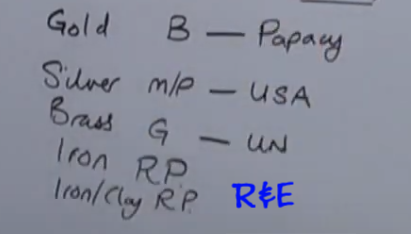 Gold B — Papacy
Silver M/P — USA
Brass G — UN
Iron RP
Iron/Clay R.P. R&E